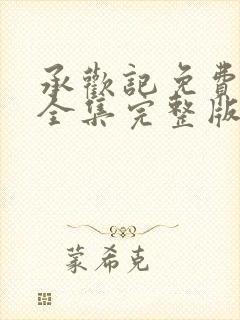 承歡記免費
全集完整版
蒙希克